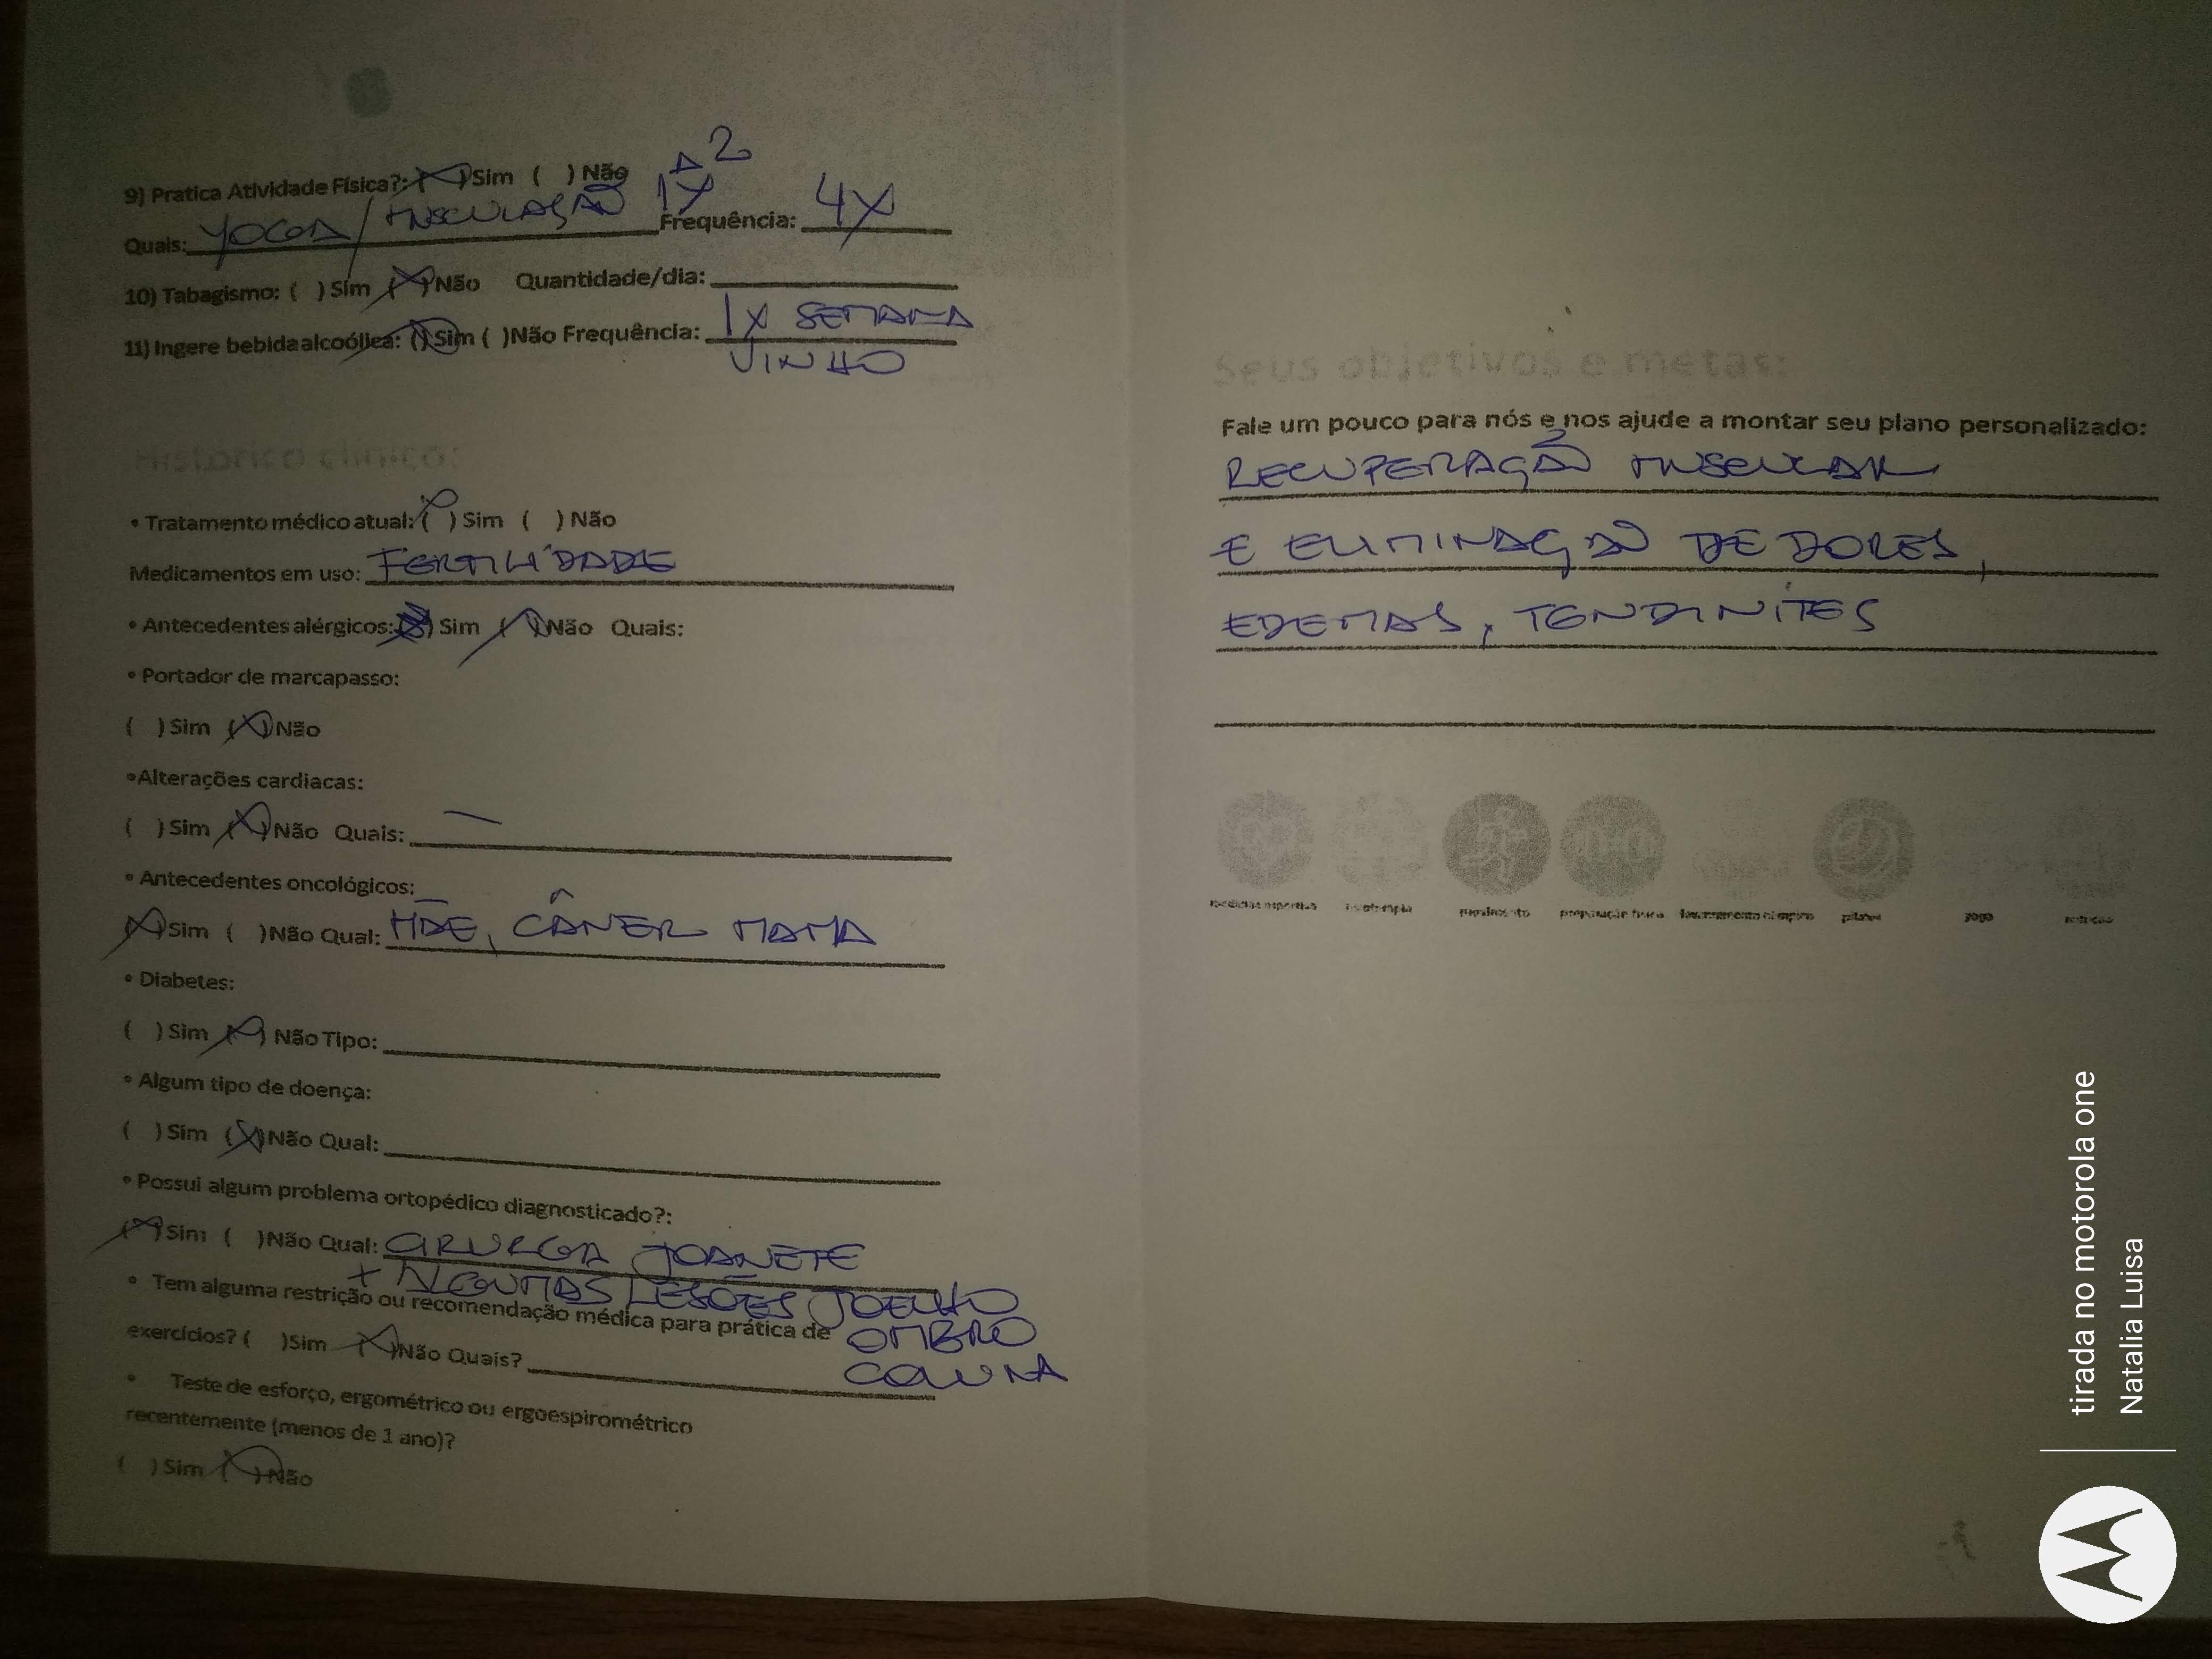 9) Pratica Atividade Física?: (X) Sim ( ) Não
Quais: YOGA / MUSCULAÇÃO 1X A 2 Frequência: 4X
10) Tabagismo: ( ) Sim (X) Não Quantidade/dia:
11) Ingere bebida alcoólica: (X) Sim ( ) Não Frequência: 1X SEMANA
VINHO
Histórico clínico:
• Tratamento médico atual: (X) Sim ( ) Não
Medicamentos em uso: FERTILIDADE
• Antecedentes alérgicos: ( ) Sim (X) Não Quais:
• Portador de marcapasso:
( ) Sim (X) Não
• Alterações cardiacas:
( ) Sim (X) Não Quais: —
• Antecedentes oncológicos:
(X) Sim ( ) Não Qual: MÃE, CÂNCER MAMA
• Diabetes:
( ) Sim (X) Não Tipo:
• Algum tipo de doença:
( ) Sim (X) Não Qual:
• Possui algum problema ortopédico diagnosticado?:
(X) Sim ( ) Não Qual: CIRURGIA JOANETE
+ ALGUMAS LESÕES JOELHO
OMBRO
COLUNA
• Tem alguma restrição ou recomendação médica para prática de
exercícios? ( ) Sim (X) Não Quais?
• Teste de esforço, ergométrico ou ergoespirométrico
recentemente (menos de 1 ano)?
( ) Sim (X) Não
Seus objetivos e metas:
Fale um pouco para nós e nos ajude a montar seu plano personalizado:
RECUPERAÇÃO MUSCULAR
E ELIMINAÇÃO DE DORES,
EDEMAS, TENDINITES
fisioterapia
movimento
preparação física
pilates
yoga
tirada no motorola one
Natalia Luisa